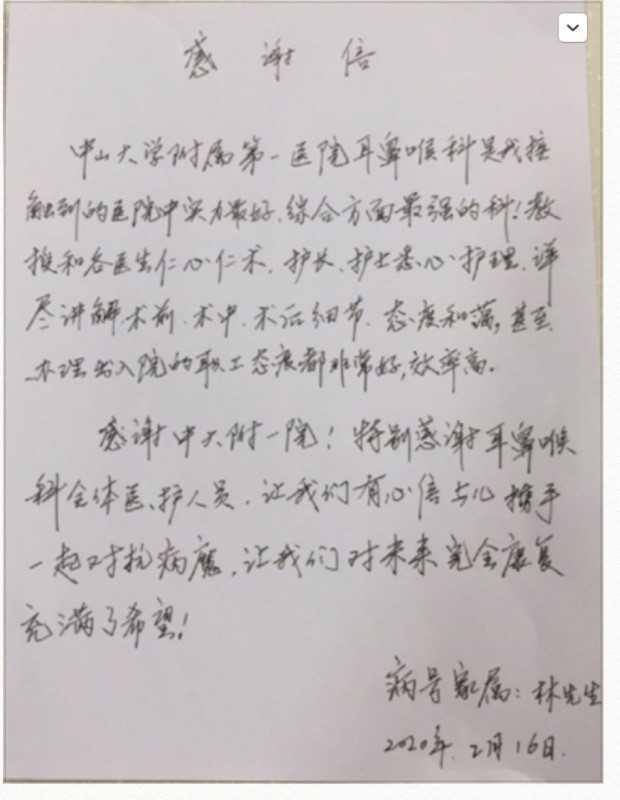 感谢信
中山大学附属第一医院耳鼻喉科是我接
触到的医院中实力最好、综合方面最强的科！教
授和各医生仁心仁术，护长、护士悉心护理，详
尽讲解术前、术中、术后细节，态度和蔼，甚至
办理出入院的职工态度都非常好，效率高。
感谢中大附一院！特别感谢耳鼻喉
科全体医、护人员，让我们有心信与儿携手
一起对抗病魔，让我们对未来完全康复
充满了希望！
病号家属：林先生
2020年2月16日.